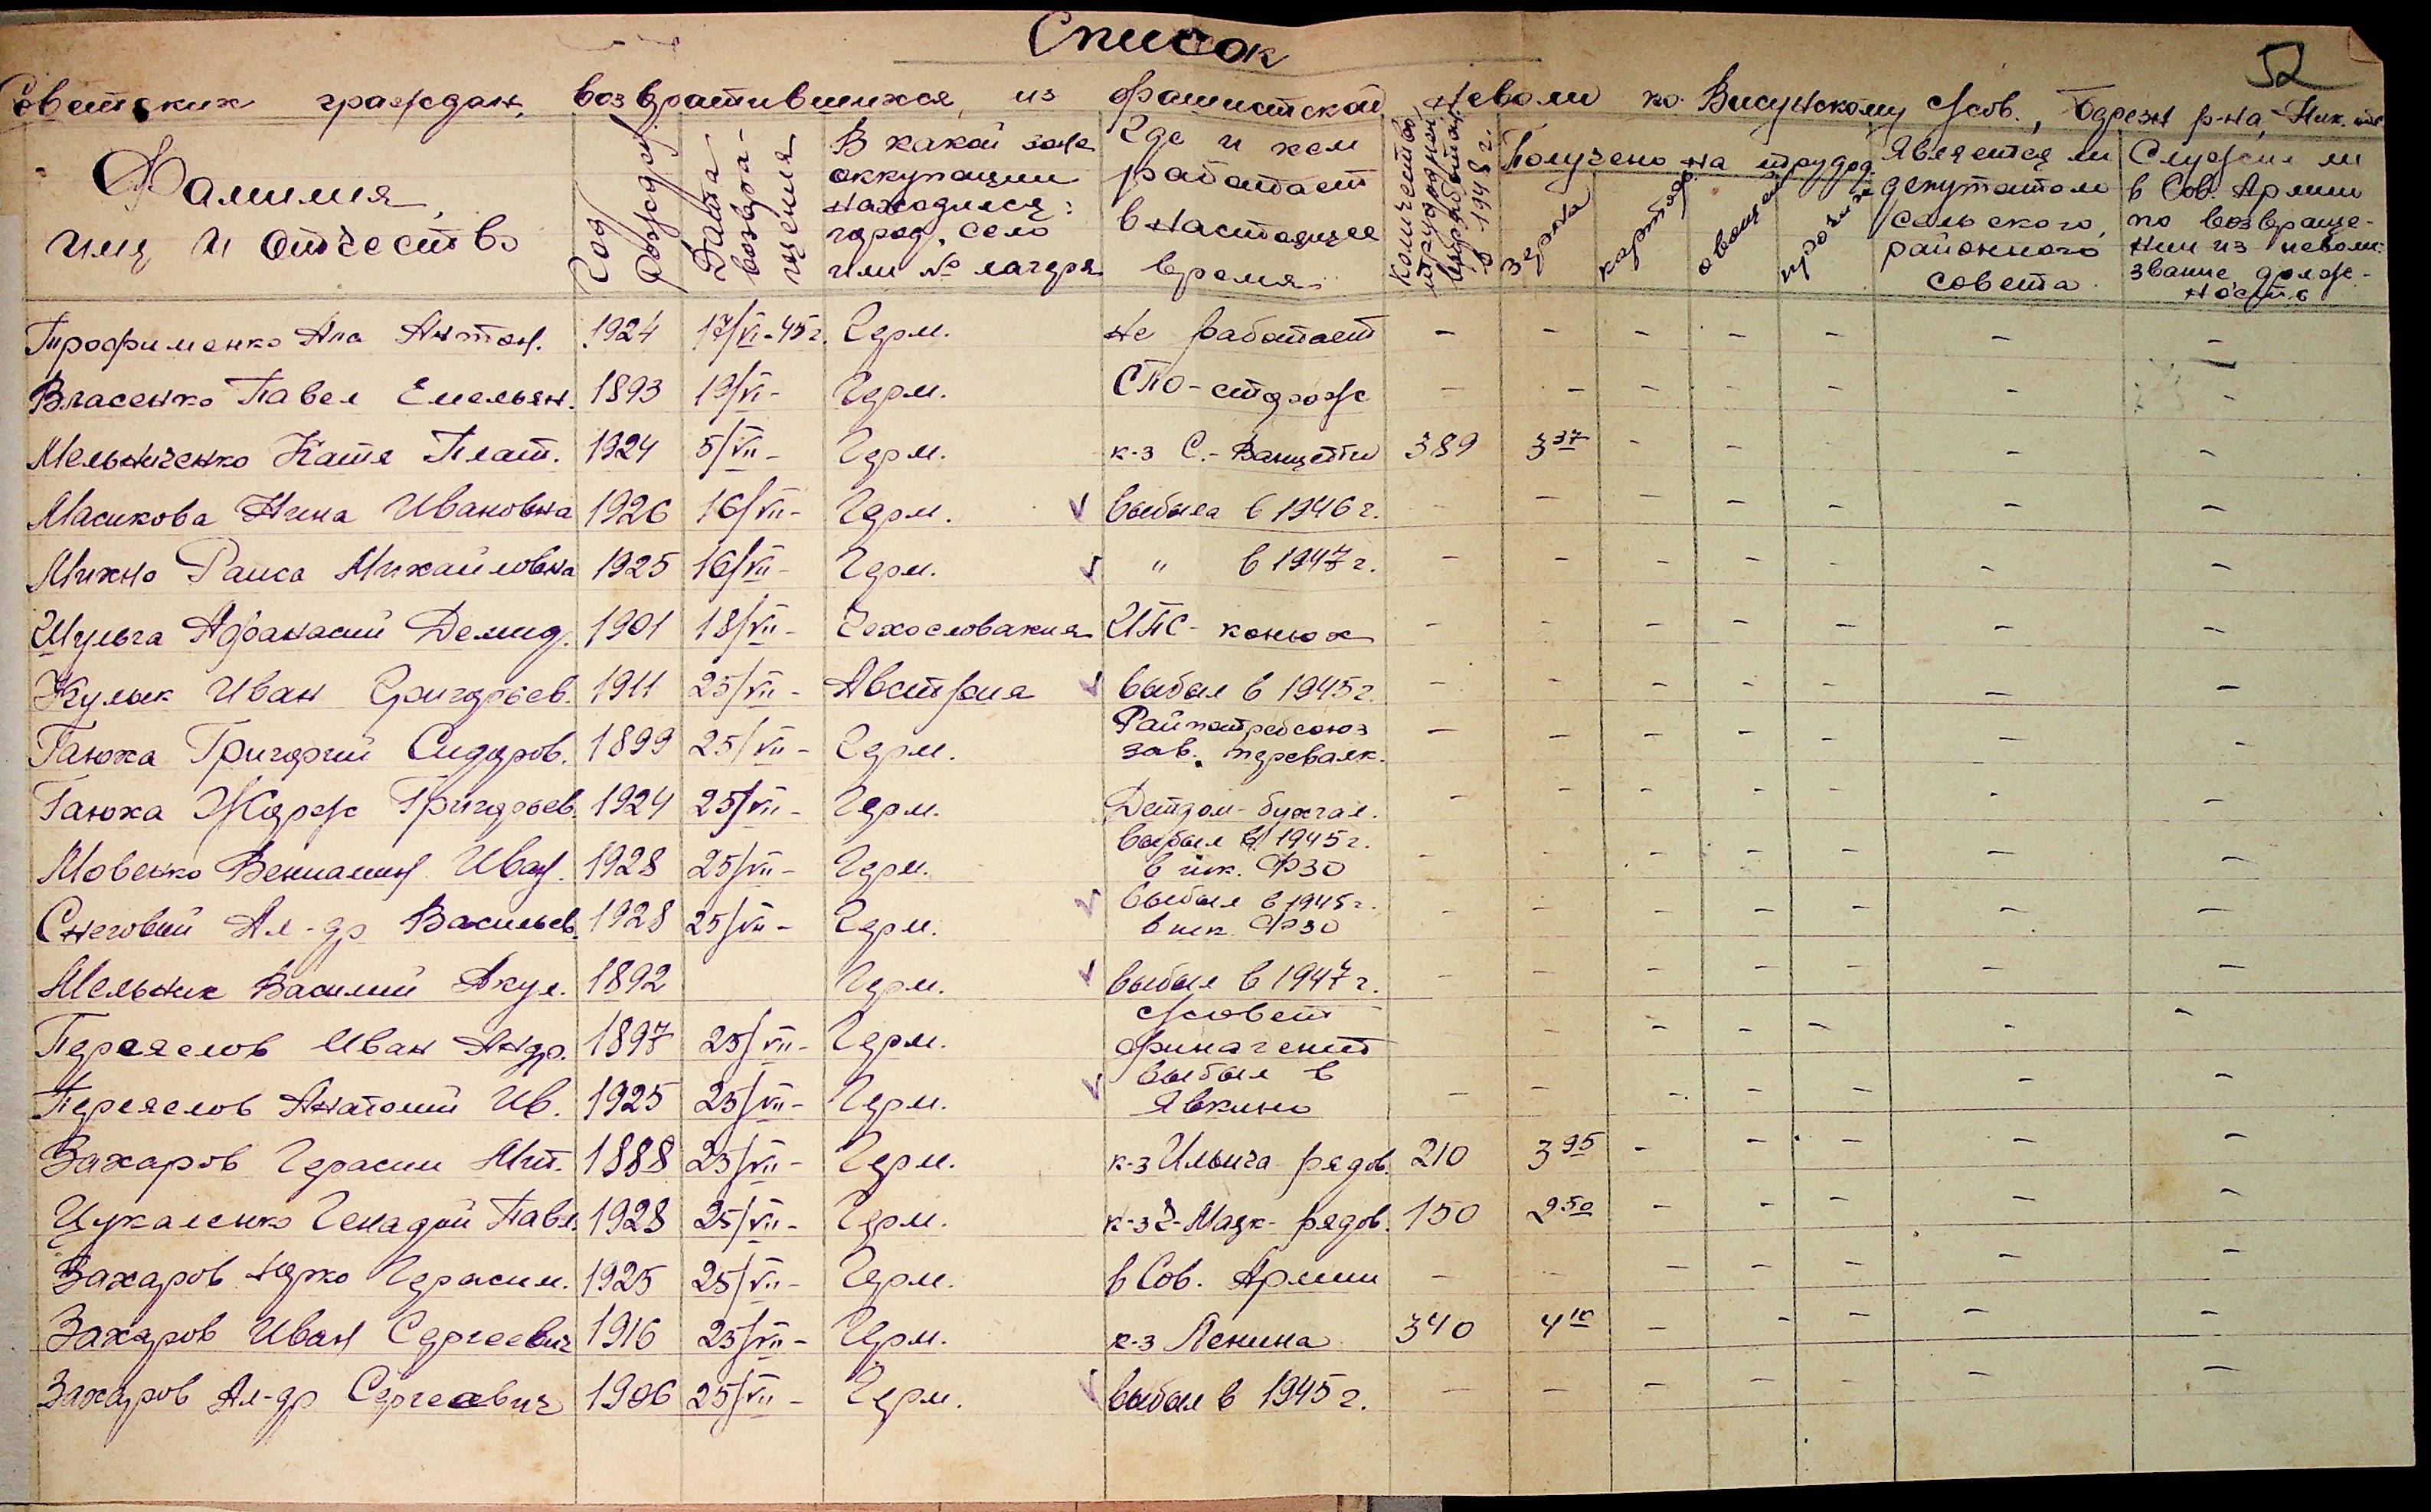 Список
52
Советских граждан, возвратившихся из фашистской неволи по Висунскому с/сов., Березн р-на, Ник. обл
Фамилия, имя и отчество
Год рождения
Дата возвра-щения
В какой зоне оккупации находился: город, село или № лагеря
Где и кем работает в настоящее время
Количество трудодней выработан. в 1948 г.
Получено на трудод.
зерна
картоф.
овощей
прочих
Является ли депутатом сельского, районного совета
Служил ли в Сов. Армии по возвраще-нии из неволи: звание долж-ность
Трофименко Ала Антон. 1924 17/VI-45г. Герм. не работает - - - - - - -
Власенко Павел Емельян. 1893 19/VI- Герм. СПО-сторож - - - - - - -
Мельниченко Катя Плат. 1924 5/VII- Герм. к-з С.-Ванцетти 389 3 37 - - - - -
Масикова Нина Ивановна 1926 16/VII- Герм. ✓ выбыла в 1946 г. - - - - - - -
Михно Раиса Михайловна 1925 16/VII- Герм. ✓ " в 1947 г. - - - - - - -
Шульга Афанасий Демид. 1901 18/VII- Чехословакия ИПС - конюх - - - - - - -
Кулык Иван Григорьев. 1911 25/VII- Австрия ✓ выбыл в 1945г. - - - - - - -
Гаюха Григорий Сидоров. 1899 25/VII- Герм. Райпотребсоюз зав. перевалк. - - - - - - -
Гаюха Жорж Григорьев. 1924 25/VII- Герм. Детдом-бухгал. - - - - - - -
Мовенко Вениамин Иван. 1928 25/VII- Герм. выбыл в 1945г. в шк. ФЗО - - - - - - -
Снеговий Ал-др Васильев. 1928 25/VII- Герм. ✓ выбыл в 1945г. в шк. ФЗО - - - - - - -
Мельник Василий Акул. 1892 Герм. ✓ выбыл в 1947 г. - - - - - - -
Переяслов Иван Андр. 1897 25/VII- Герм. с/совет финагент - - - - - -
Переяслов Анатолий Ив. 1925 25/VII- Герм. ✓ выбыл в Явкино - - - - - - -
Захаров Герасим Мит. 1888 25/VII- Герм. к-з Ильича рядов. 210 3 95 - - - - -
Цукаленко Генадий Павл. 1928 25/VII- Герм. к-з Ч-Маяк- рядов. 150 2 50 - - - - -
Захаров Юрко Герасим. 1925 25/VII- Герм. в Сов. Армии - - - - - - -
Захаров Иван Сергеевич 1916 25/VII- Герм. к-з Ленина 340 4 10 - - - - -
Захаров Ал-др Сергеевич 1906 25/VII- Герм. ✓ выбыл в 1945 г. - - - - - - -